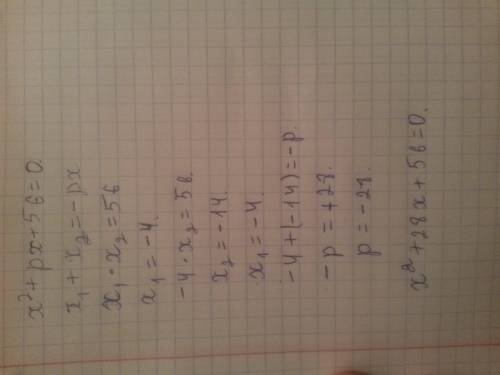 x² + px + 56 = 0.
x₁ + x₂ = -px
x₁ · x₂ = 56
x₁ = -4.
-4 · x₂ = 56.
x₂ = -14.
x₁ = -4.
-4 + (-14) = -p.
-p = +28.
p = -28.
x² + 28x + 56 = 0.